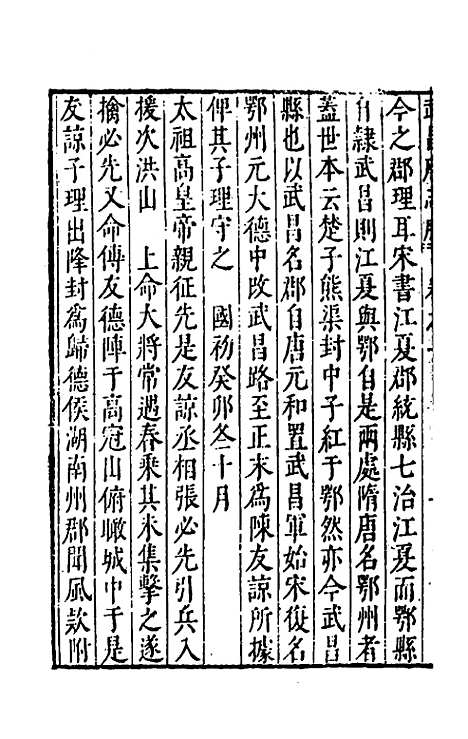 今之郡理耳宋書江夏郡統縣七治江夏而鄂縣
自隷武昌則江夏與鄂自是兩處隋唐名鄂州者
蓋世本云楚子熊渠封中子紅于鄂然亦今武昌
縣也以武昌名郡自唐元和置武昌軍始宋復名
鄂州元大德中改武昌路至正末為陳友諒所據
俾其子理守之 國初癸卯冬十月
太祖高皇帝親征先是友諒丞相張必先引兵入
援次洪山 上命大將常遇春乘其未集擊之遂
擒必先又命傅友德陣于高冠山俯瞰城中于是
友諒子理出降封為歸德侯湖南州郡聞風款附